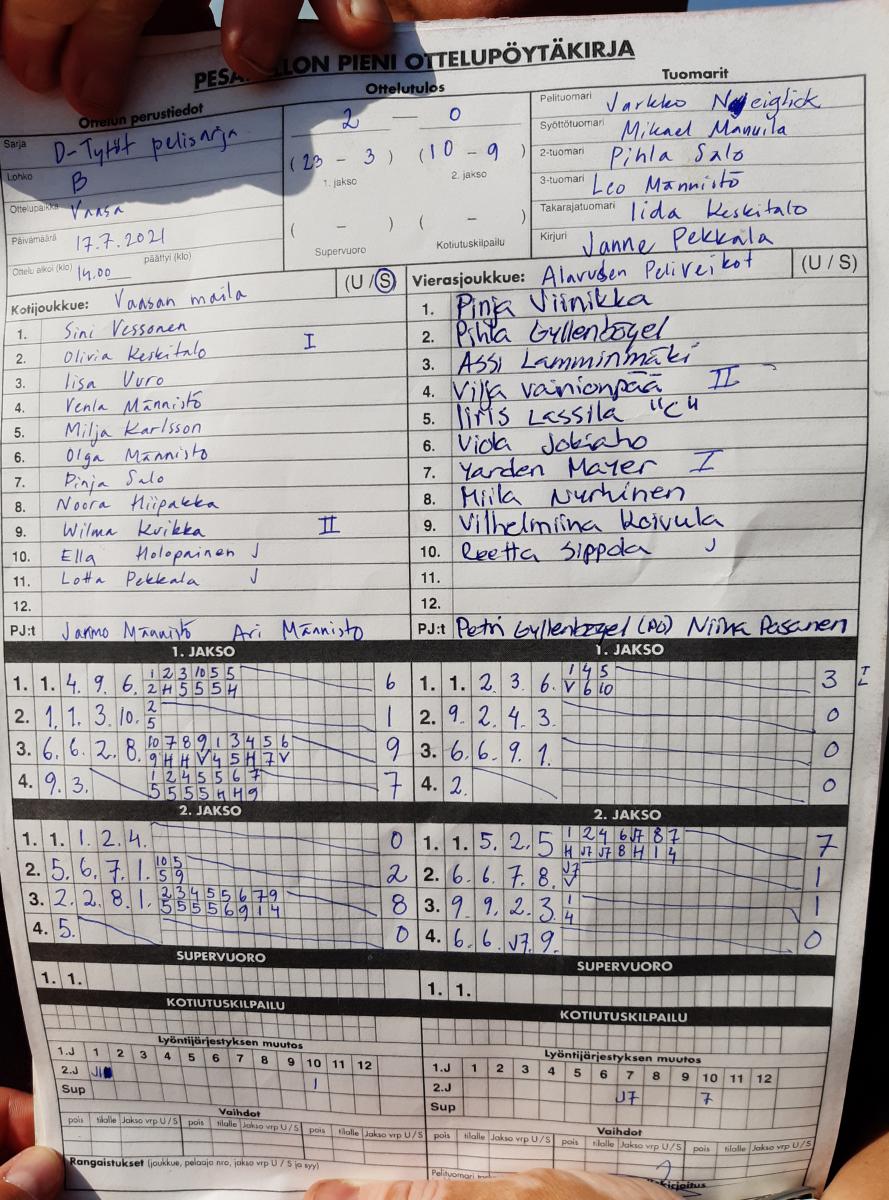 PESÄPALLON PIENI OTTELUPÖYTÄKIRJA
Ottelun perustiedot
Sarja D-Tytöt pelisarja
Lohko B
Ottelupaikka Vaasa
Päivämäärä 17.7.2021
Ottelu alkoi (klo) 14.00 päättyi (klo)
Ottelutulos
2 — 0
(23 - 3) (10 - 9)
1. jakso 2. jakso
( - ) ( - )
Supervuoro Kotiutuskilpailu
Tuomarit
Pelituomari Jarkko Nyeiglick
Syöttötuomari Mikael Manuila
2-tuomari Pihla Salo
3-tuomari Leo Männistö
Takarajatuomari Iida Keskitalo
Kirjuri Janne Pekkala
Kotijoukkue: Vaasan maila (U / S)
1. Sini Vessonen
2. Olivia Keskitalo I
3. Iisa Vuro
4. Venla Männistö
5. Milja Karlsson
6. Olga Männistö
7. Pinja Salo
8. Noora Hiipakka
9. Wilma Kuikka II
10. Ella Holopainen J
11. Lotta Pekkala J
12.
PJ:t Jarmo Männistö Ari Männistö
Vierasjoukkue: Alavuden Peliveikot (U / S)
1. Pinja Viinikka
2. Pihla Gyllenbögel
3. Assi Lamminmäki
4. Vilja Vainionpää II
5. Iiris Lassila "C"
6. Viola Jokiaho
7. Yarden Mayer I
8. Miila Nurhinen
9. Vilhelmiina Koivula
10. Reetta Sippola J
11.
12.
PJ:t Petri Gyllenbögel (PO) Niina Pasanen
1. JAKSO
1. 1. 4. 9. 6. 1 2 3 10 5 5 6
2 H 5 5 5 H
2. 1. 1. 3. 10. 2 1
5
3. 6. 6. 2. 8. 10 7 8 9 1 3 4 5 6 9
9 H H V 4 5 H 7 V
4. 9. 3. 1 2 4 5 5 6 7 7
5 5 5 5 H H 9
1. JAKSO
1. 1. 2. 3. 6. 1 4 5 3
V 6 10
2. 9. 2. 4. 3. 0
3. 6. 6. 9. 1. 0
4. 2. 0
2. JAKSO
1. 1. 1. 2. 4. 0
2. 5. 6. 7. 1. 10 5 2
5 9
3. 2. 2. 8. 1. 2 3 4 5 5 6 7 9 8
5 5 5 5 6 9 1 4
4. 5. 0
2. JAKSO
1. 1. 5. 2. 5 1 2 4 6 J7 8 7 7
H J7 J7 8 H 1 4
2. 6. 6. 7. 8. J7 1
V
3. 9. 9. 2. 3. 1 1
4
4. 6. 6. J7. 9. 0
SUPERVUORO
1. 1.
SUPERVUORO
1. 1.
KOTIUTUSKILPAILU
KOTIUTUSKILPAILU
Lyöntijärjestyksen muutos
1.J 1 2 3 4 5 6 7 8 9 10 11 12
2.J 1
Sup
Lyöntijärjestyksen muutos
1.J 1 2 3 4 5 6 7 8 9 10 11 12
2.J J7 7
Sup
Vaihdot
pois tilalle Jakso vrp U / S pois tilalle Jakso vrp U / S pois tilalle Jakso vrp U / S
Vaihdot
pois tilalle Jakso vrp U / S pois tilalle Jakso vrp U / S pois tilalle Jakso vrp U / S
Rangaistukset (joukkue, pelaaja nro, jakso vrp U / S ja syy)
Pelituomari